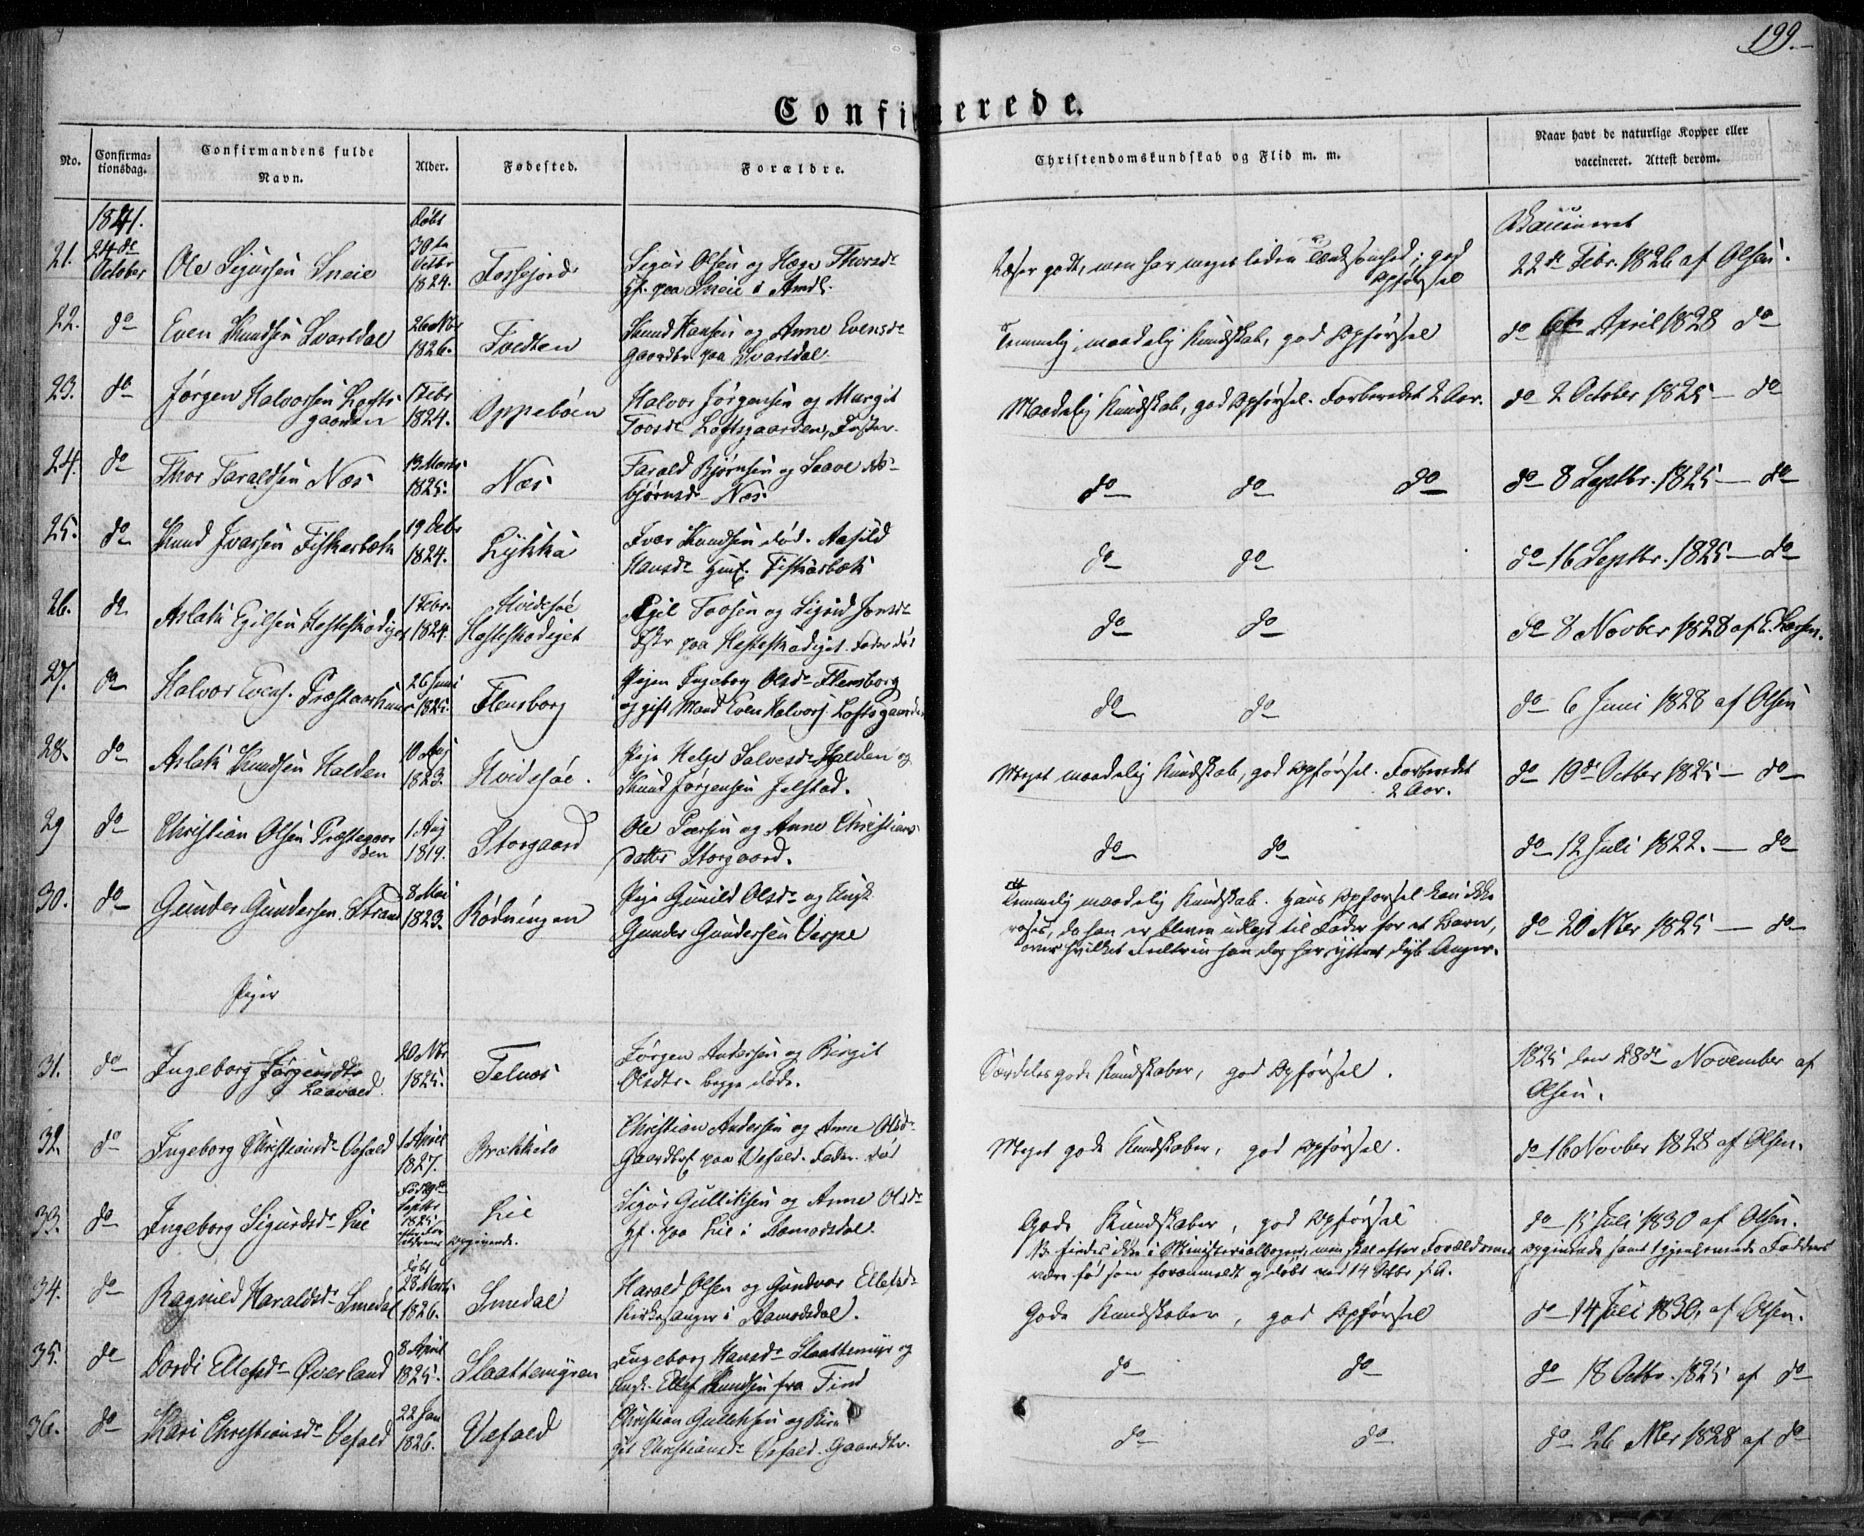 199.
Confirmerede.
No. Confirma-tionsdag. Confirmandens fulde Navn. Alder. Fødested. Forældre. Christendomskundskab og Flid m. m. Naar havt de naturlige Kopper eller vaccineret. Attest derom.
1841. Døbt Vaccineret
21. 24de October Ole Sigursen Sneie 30te 1824. Fossejord Sigur Olsen og Hæge Thorsdr paa Sneie i Amdl. Læser godt, men har meget liden Tænksomhed; god Opførsel 22de Febr. 1826 af Olsen.
22. do Even Knudsen Svartdal 26 Nbr 1826. Tvedten Knud Hansen og Anne Evensdr Gaardbr paa Svartdal Temmelig maadelig Kundskab, god Opførsel do 6te April 1828 do
23. do Jørgen Halvorsen Lofts gaarden 1 Febr 1824. Oppebøen Halvor Jørgensen og Margit Toresdr Loftsgaarden, Maadelig Kundskab, god Opførsel. Forberedet 2 Aar. do 2 October 1825 — do
24. do Thor Taraldsen Næs 13 Marts 1825. Næs Tarald Bjørnsen og Saave As-bjørnsdr Næs do do do do 8 Septbr. 1825 — do
25. do Knud Ivarsen Fiskarbæk 19 Octbr 1824. Lykkja Ivar Knudsen død. Aasild Hansdr Fiskarbæk do do do 16 Septbr. 1825 — do
26. do Aslak Egilsen Hesteskodiget 1 Febr. 1824. Hvidesøe Hesteskodiget Egil Tovsen og Sigrid Jonsdr paa Hesteskodiget. Fader død do do do 8 Novber 1828 af E. Larsen.
27. do Halvor Evens. Præstaarhuus 26 Juni 1825. Flensborg Pigen Ingeborg Olsdr Flensborg og gift Mand Even Halvors. Loftsgaarden do do do 6 Juni 1828 af Olsen
28. do Aslak Knudsen Halden 10 Aug 1823. Hvidesøe. Pige Helge Salvesdr Halden og Knud Jørgensen Jelstad. Meget maadelig Kundskab, god Opførsel. Forberedet 2 Aar. do 10de Octbr 1825 — do
29 do Christian Olsen Præstegaar den 1 Aug 1819. Storgaard Ole Pærsen og Anne Christians datter Storgaard. do do do 12 Juli 1822. — do
30. do Gunder Gundersen Strand 8 Mai 1823. Rødningen Pige Gunild Olsdr og Ungk. Gunder Gundersen Vaspe Temmelig maadelig Kundskab. Hans Opførsel kan ikke roses, da han er bleven udlagt til Fader for et Barn, over hvilket Feiltrin han dog har yttret dyb Anger. do 20 Nber 1825 — do
Piger
31. do Ingeborg Jørgensdtr Laavald 20 Nbr 1825. Telnæs Jørgen Andersen og Birgit Olsdtr. begge døde. Særdeles gode Kundskaber, god Opførsel. 1825 den 28de November af Olsen.
32. do Ingeborg Christiansdr Vefald 1 April 1827. Brækkelo Christian Andersen og Anne Olsdr Gaardbrf paa Vefald. Fader død Meget gode Kundskaber, god Opførsel. do 16 Novber 1828 af Olsen.
33. do Ingeborg Sigurdsdr Lie Septbr 1825 opgivende. Lie Sigur Gulliksen og Anne Olsdr paa Lie i Aamodsdal Gode Kundskaber, god Opførsel findes ikke i Ministerialbogen, men skal efter Forældrenes opgivende samt være født som foranmeldt og døbt ved 14 Octbr s. A. do 15 Juli 1830 af Olsen.
34. do Ragnild Haraldsdr Smedal døbt 28 Marts 1826. Smedal Harald Olsen og Gundvor Ellefsdr Kirkesanger i Aamodsdal. Gode Kundskaber, god Opførsel do 14 Juli 1830, af Olsen.
35. do Dordi Ellefsdr Øverland 8 April 1825. Slaattemyren Ingeborg Hansdr Slaattemyr og Ungk. Ellef Knudsen fra Tind do do do 18 Octbr. 1825 af do
36. do Kari Christiansdr Vefald 22 Jan 1826. Vefald Christian Gulliksen og Bir-git Christiansdr Vefald. Gaardbr. do do do 26 Nber 1828 af do